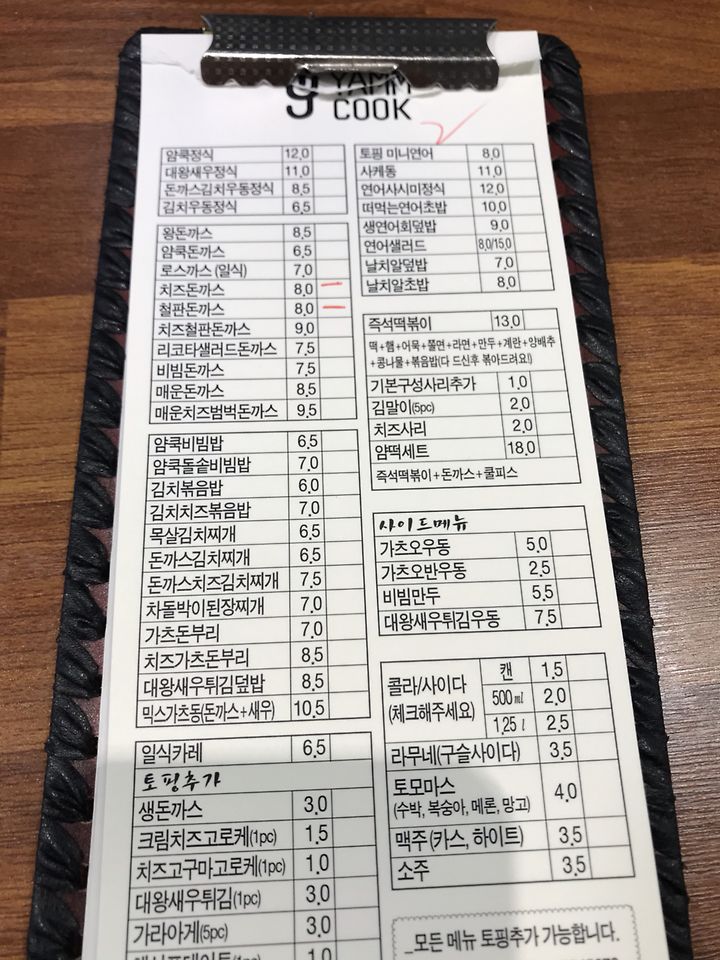 YAMM
COOK
얌쿡정식 12.0
대왕새우정식 11.0
돈까스김치우동정식 8.5
김치우동정식 6.5
왕돈까스 8.5
얌쿡돈까스 6.5
로스까스 (일식) 7.0
치즈돈까스 8.0
철판돈까스 8.0
치즈철판돈까스 9.0
리코타샐러드돈까스 7.5
비빔돈까스 7.5
매운돈까스 8.5
매운치즈범벅돈까스 9.5
얌쿡비빔밥 6.5
얌쿡돌솥비빔밥 7.0
김치볶음밥 6.0
김치치즈볶음밥 7.0
목살김치찌개 6.5
돈까스김치찌개 6.5
돈까스치즈김치찌개 7.5
차돌박이된장찌개 7.0
가츠돈부리 7.0
치즈가츠돈부리 8.5
대왕새우튀김덮밥 8.5
믹스가츠동(돈까스+새우) 10.5
일식카레 6.5
토핑추가
생돈까스 3.0
크림치즈고로케(1pc) 1.5
치즈고구마고로케(1pc) 1.0
대왕새우튀김(1pc) 3.0
가라아게(5pc) 3.0
1.0
토핑 미니연어 8.0
사케동 11.0
연어사시미정식 12.0
떠먹는연어초밥 10.0
생연어회덮밥 9.0
연어샐러드 8.0/15.0
날치알덮밥 7.0
날치알초밥 8.0
즉석떡볶이 13.0
떡+햄+어묵+쫄면+라면+만두+계란+양배추
+콩나물+볶음밥(다 드신후 볶아드려요!)
기본구성사리추가 1.0
김말이(5pc) 2.0
치즈사리 2.0
얌떡세트 18.0
즉석떡볶이+돈까스+쿨피스
사이드메뉴
가츠오우동 5.0
가츠오반우동 2.5
비빔만두 5.5
대왕새우튀김우동 7.5
콜라/사이다
(체크해주세요)
캔 1.5
500㎖ 2.0
1.25ℓ 2.5
라무네(구슬사이다) 3.5
토모마스
(수박, 복숭아, 메론, 망고) 4.0
맥주 (카스, 하이트) 3.5
소주 3.5
_모든 메뉴 토핑추가 가능합니다.